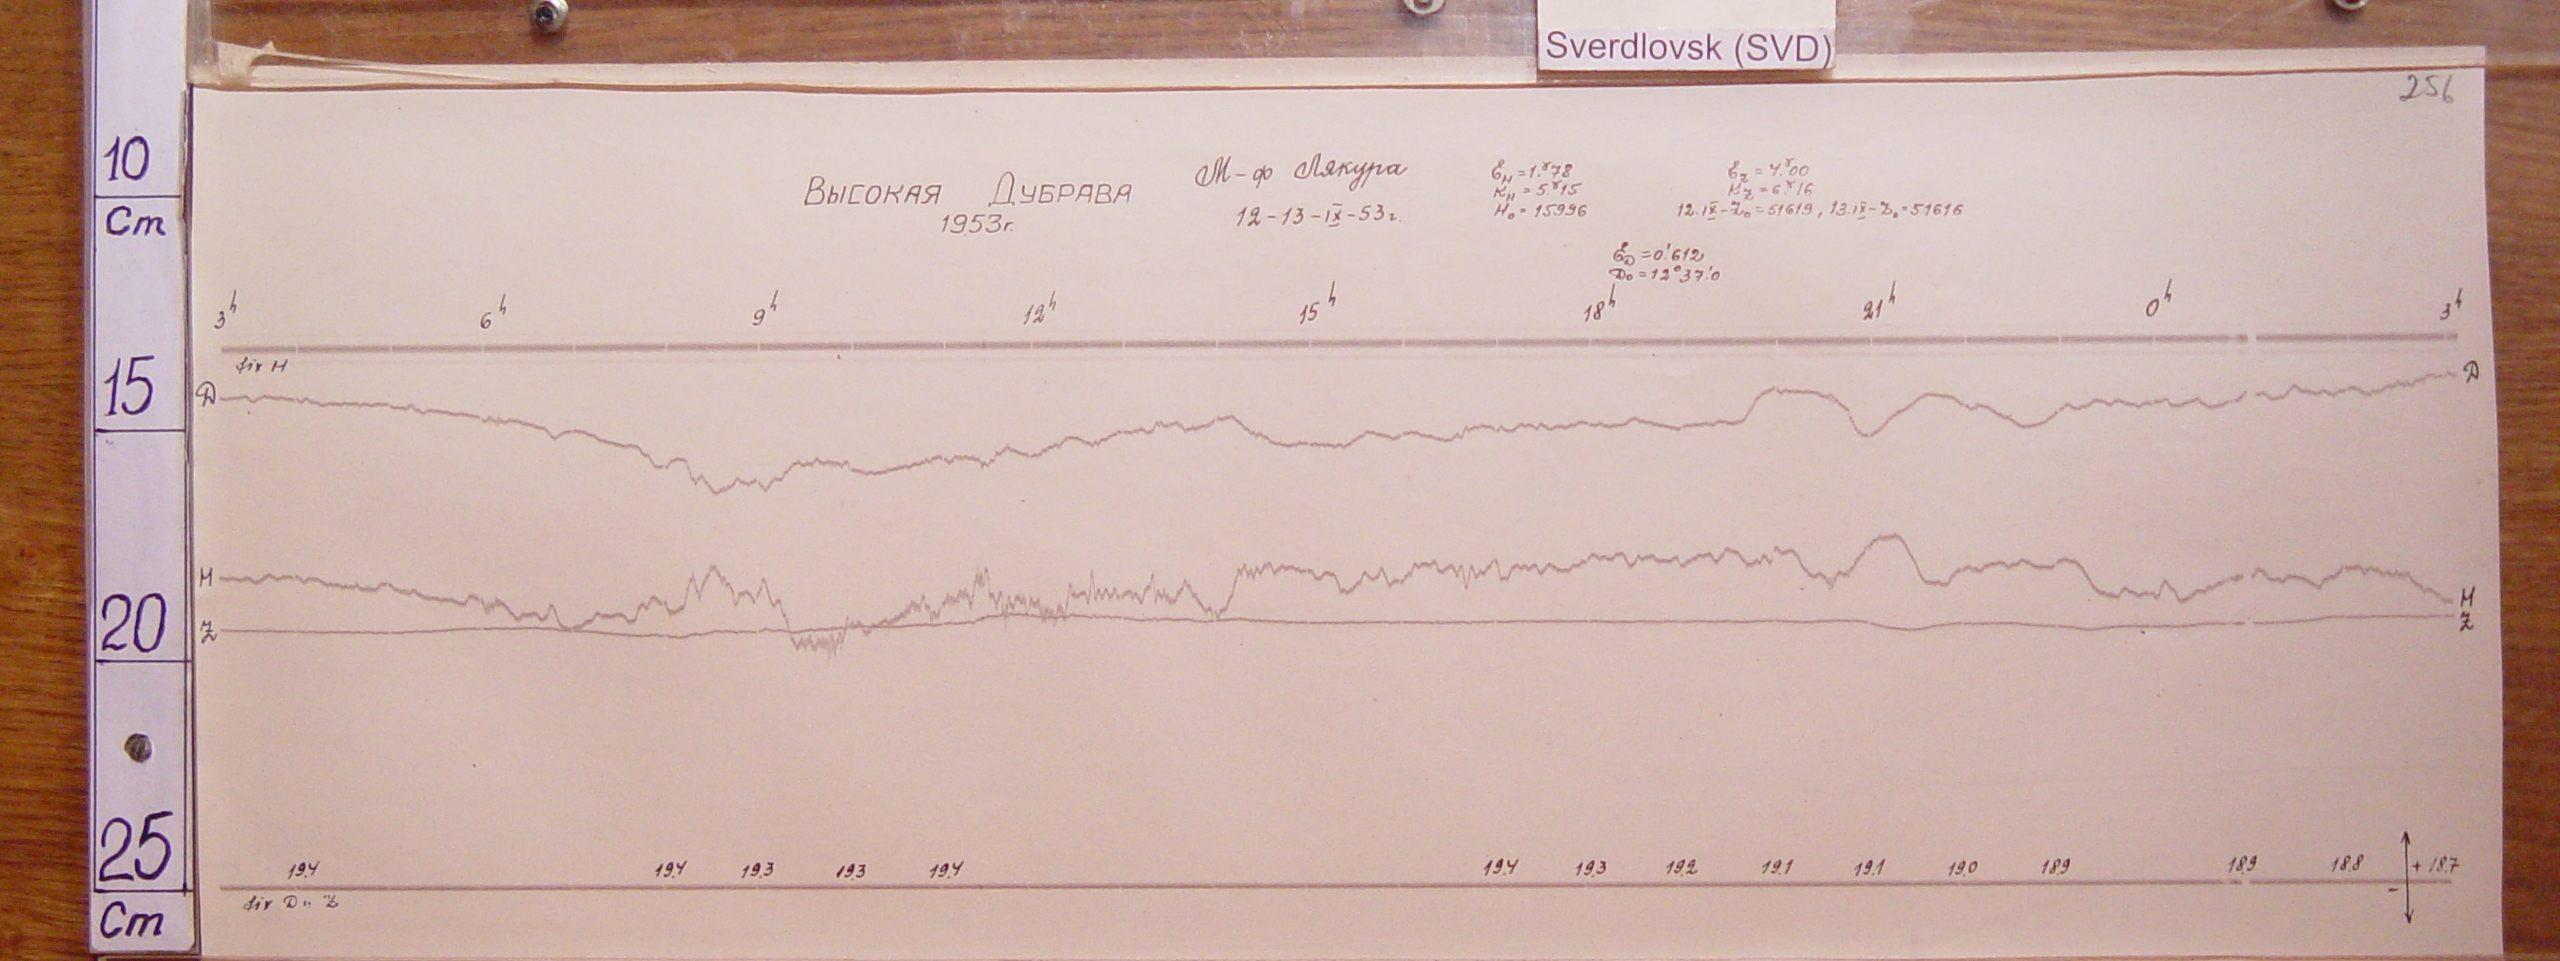 Sverdlovsk (SVD)
256
10
Cm
15
20
25
Cm
Высокая Дубрава
1953г.
М-ф Лякура
12-13-IX-53г.
Ɛн = 1.ᵞ78
Kн = 5.ᵞ15
H₀ = 15996
Ɛz = 4.ᵞ00
Kz = 6.ᵞ16
12.IX-Z₀=51619, 13.IX-Z₀=51616
ƐD = 0.'612
D₀ = 12°37.'0
3h 6h 9h 12h 15h 18h 21h 0h 3h
H
D D
H H
Z Z
19.4 19.4 19.3 19.3 19.4 19.4 19.3 19.2 19.1 19.1 19.0 18.9 18.9 18.8 + 18.7
-
D и Z